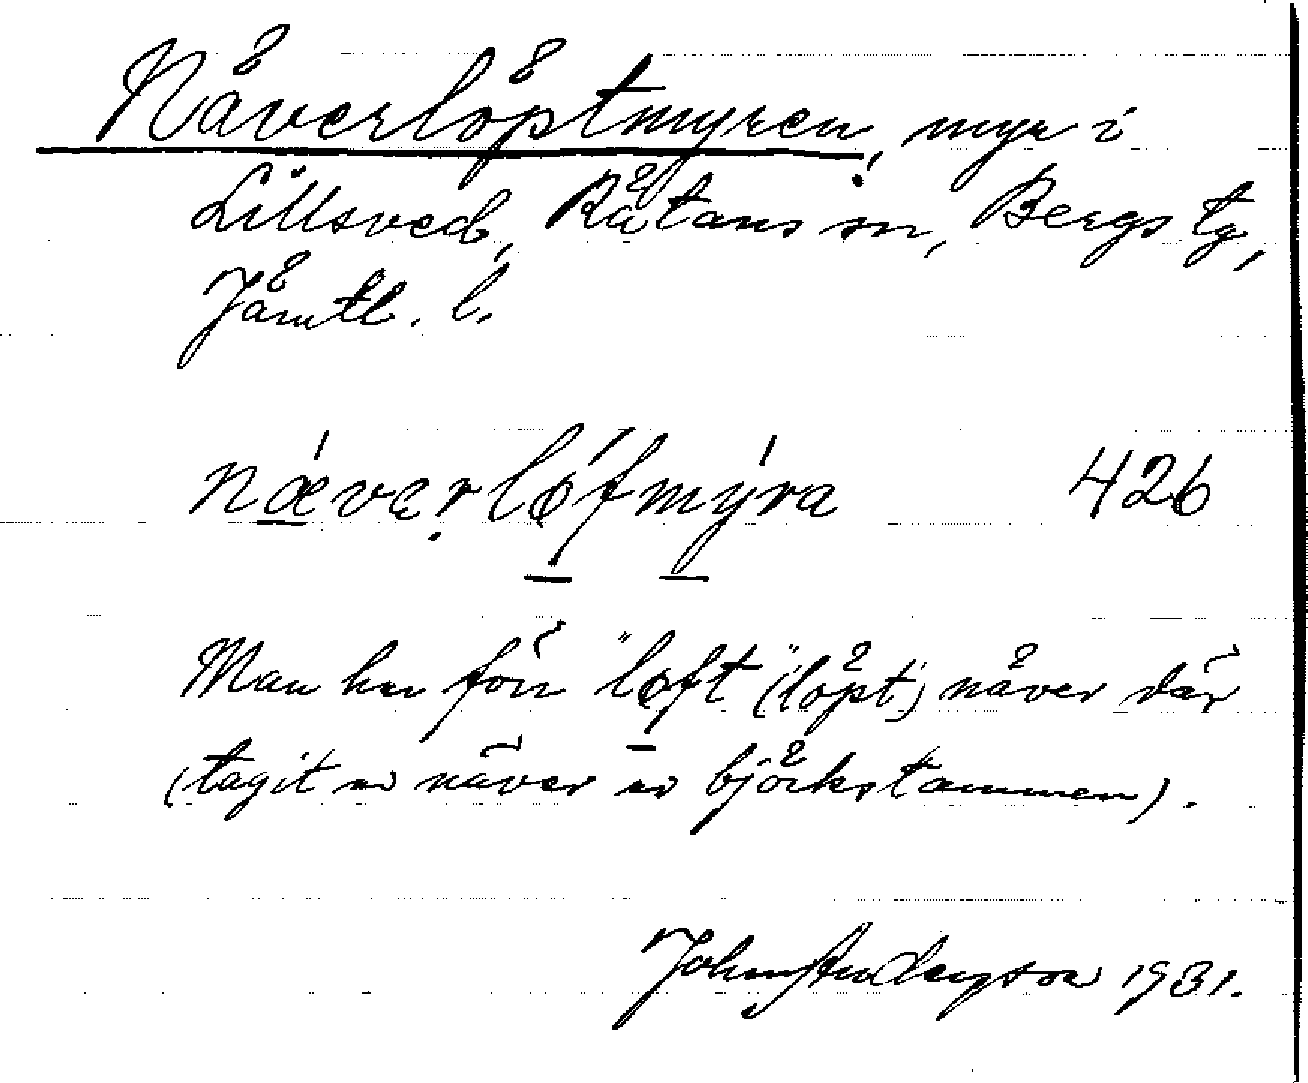 Näverlöptmyren, myr i
Lillsved, Rätans sn, Bergs tg,
Jämtl. l.
næværløfmýra 426
Man har förr "løft" ("löpt") näver där
(tagit av näver av björkstammen).
John Andersson 1931.